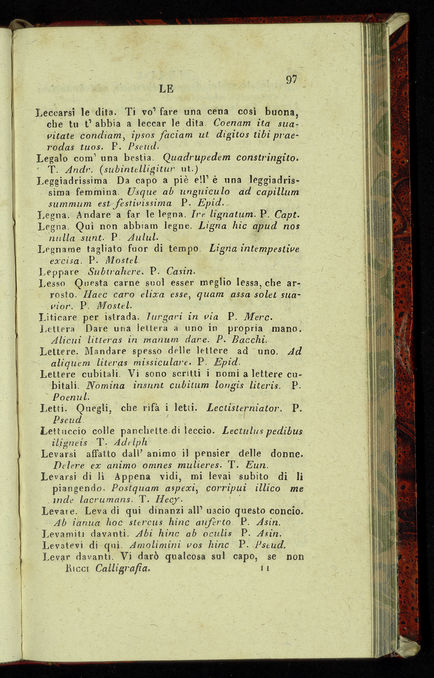 97
LE
Leccarsi le dita. Ti vo' fare una cena così buona,
che tu t' abbia a leccar le dita. Coenam ita sua-
vitate condiam, ipsos faciam ut digitos tibi prae-
rodas tuos. P. Pseud.
Legalo com' una bestia. Quadrupedem constringito.
T. Andr. (subintelligitur ut.)
Leggiadrissima Da capo a piè ell' è una leggiadris-
sima femmina. Usque ab unguiculo ad capillum
summum est festivissima P. Epid.
Legna. Andare a far le legna. Ire lignatum. P. Capt.
Legna. Qui non abbiam legne. Ligna hic apud nos
nulla sunt. P. Aulul.
Legname tagliato fuor di tempo. Ligna intempestive
excisa. P. Mostel
Leppare Subtrahere. P. Casin.
Lesso Questa carne suol esser meglio lessa, che ar-
rosto. Haec caro elixa esse, quam assa solet sua-
vior. P. Mostel.
Liticare per istrada. Iurgari in via P. Merc.
Lettera Dare una lettera a uno in propria mano.
Alicui litteras in manum dare. P. Bacchi.
Lettere. Mandare spesso delle lettere ad uno. Ad
aliquem literas missiculare. P. Epid.
Lettere cubitali. Vi sono scritti i nomi a lettere cu-
bitali. Nomina insunt cubitum longis literis. P.
Poenul.
Letti. Quegli, che rifà i letti. Lectisterniator. P.
Pseud
Lettuccio colle panchette di leccio. Lectulus pedibus
iligneis T. Adelph
Levarsi affatto dall' animo il pensier delle donne.
Delere ex animo omnes mulieres. T. Eun.
Levarsi di lì Appena vidi, mi levai subito di lì
piangendo. Postquam aspexi, corripui illico me
inde lacrumans. T. Hecy.
Levare. Leva di qui dinanzi all' uscio questo concio.
Ab ianua hoc stercus hinc auferto P. Asin.
Levamiti davanti. Abi hinc ab oculis P. Asin.
Levatevi di qui. Amolimini vos hinc P. Pseud.
Levar davanti. Vi darò qualcosa sul capo, se non
Ricci Calligrafia. 11